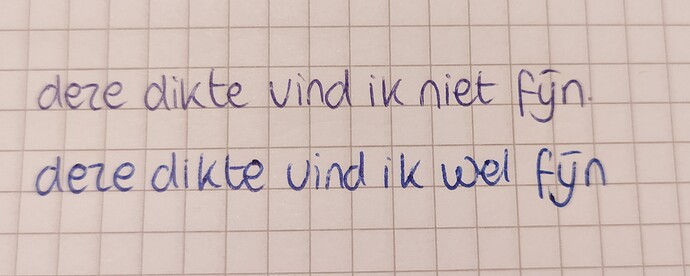 deze dikte vind ik niet fijn.
deze dikte vind ik wel fijn